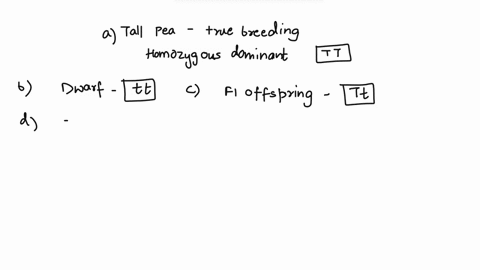 a) Tall pea - true breeding
Homozygous dominant TT
b) Dwarf - tt c) F1 offspring - Tt
d) -